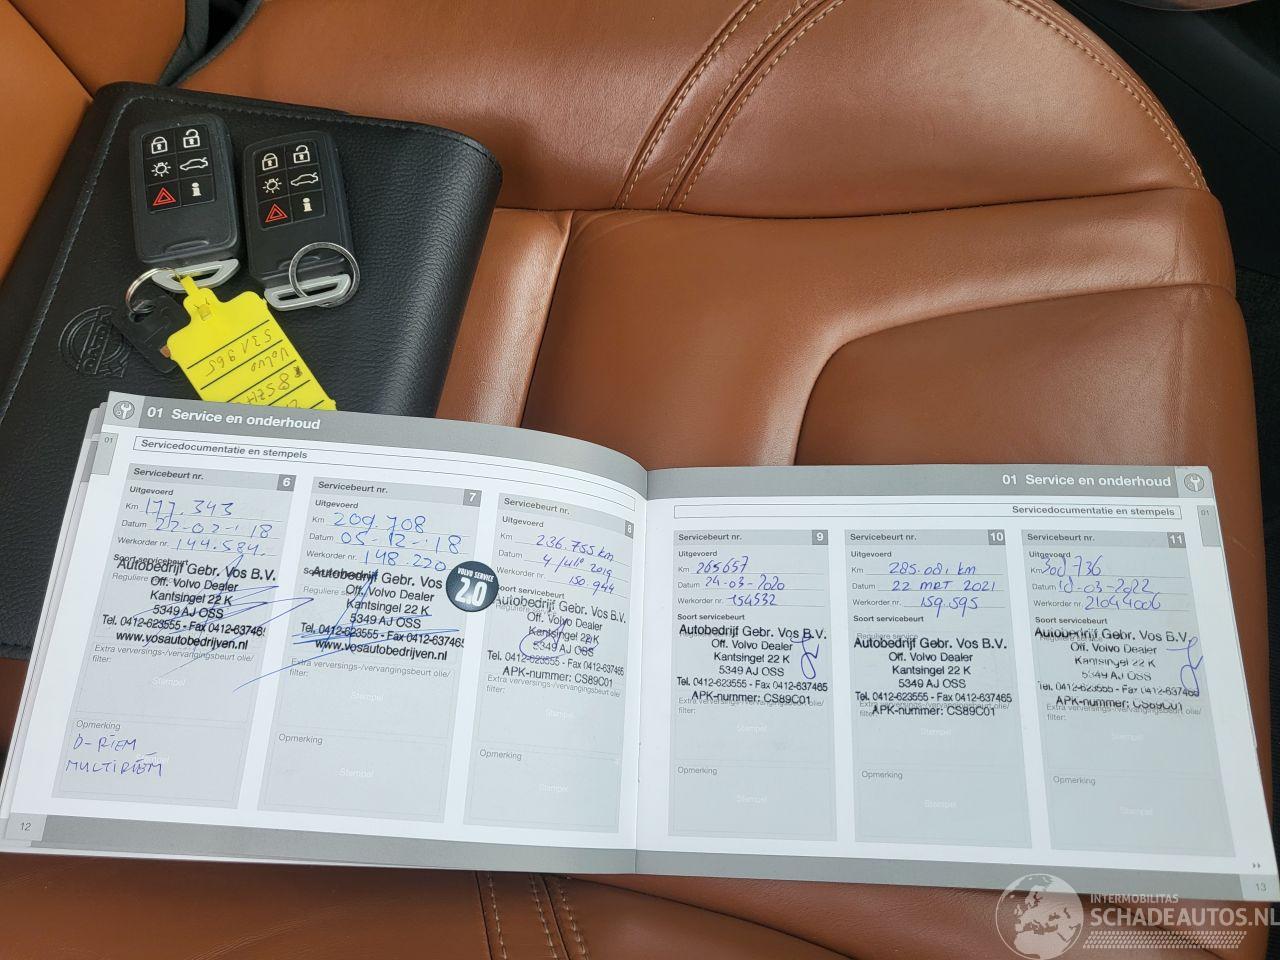 VOLVO
531965
01 Service en onderhoud
Servicedocumentatie en stempels
01
Servicebeurt nr. 6
Uitgevoerd
Km 177.343
Datum 22-02-'18
Werkorder nr. 144.584.
Soort servicebeurt
Autobedrijf Gebr. Vos B.V.
Off. Volvo Dealer
Kantsingel 22 K
5349 AJ OSS
Tel. 0412-623555 - Fax 0412-637465
www.vosautobedrijven.nl
Extra verversings-/vervangingsbeurt olie/
filter:
Stempel
Opmerking
D-RIEM
MULTIRIEM
Servicebeurt nr. 7
Uitgevoerd
Km 209.708
Datum 05-12-'18
Werkorder nr. 148.220
Autobedrijf Gebr. Vos
Off. Volvo Dealer
Kantsingel 22 K
5349 AJ OSS
Tel. 0412-623555 - Fax 0412-637465
www.vosautobedrijven.nl
Extra verversings-/vervangingsbeurt olie/
filter:
Stempel
Opmerking
Stempel
VOLVO SERVICE
2.0
Servicebeurt nr. 8
Uitgevoerd
Km 236.755 km
Datum 4 juli 2019
Werkorder nr. 150.944
Soort servicebeurt
Autobedrijf Gebr. Vos B.V.
Off. Volvo Dealer
Kantsingel 22K
5349 AJ OSS
Tel. 0412-623555 - Fax 0412-637465
APK-nummer: CS89C01
Extra verversings-/vervangingsbeurt olie/
filter:
Stempel
Opmerking
Stempel
12
01 Service en onderhoud
Servicedocumentatie en stempels
01
Servicebeurt nr. 9
Uitgevoerd
Km 265657
Datum 24-03-2020
Werkorder nr. 154532
Soort servicebeurt
Autobedrijf Gebr. Vos B.V.
Off. Volvo Dealer
Kantsingel 22 K
5349 AJ OSS
Tel. 0412-623555 - Fax 0412-637465
APK-nummer: CS89C01
Extra verversings-/vervangingsbeurt olie/
filter:
Stempel
Opmerking
Stempel
Servicebeurt nr. 10
Uitgevoerd
Km 285.081 km
Datum 22 mrt 2021
Werkorder nr. 159.595
Soort servicebeurt
Reguliere service
Autobedrijf Gebr. Vos B.V.
Off. Volvo Dealer
Kantsingel 22 K
5349 AJ OSS
Tel. 0412-623555 - Fax 0412-637465
APK-nummer: CS89C01
Extra verversings-/vervangingsbeurt olie/
filter:
Stempel
Opmerking
Stempel
Servicebeurt nr. 11
Uitgevoerd
Km 300736
Datum 10-03-2022
Werkorder nr. 21044006
Soort servicebeurt
Reguliere service
Autobedrijf Gebr. Vos B.V.
Off. Volvo Dealer
Kantsingel 22 K
5349 AJ OSS
Tel. 0412-623555 - Fax 0412-637465
APK-nummer: CS89C01
Extra verversings-/vervangingsbeurt olie/
filter:
Stempel
Opmerking
Stempel
13
INTERMOBILITAS
SCHADEAUTOS.NL